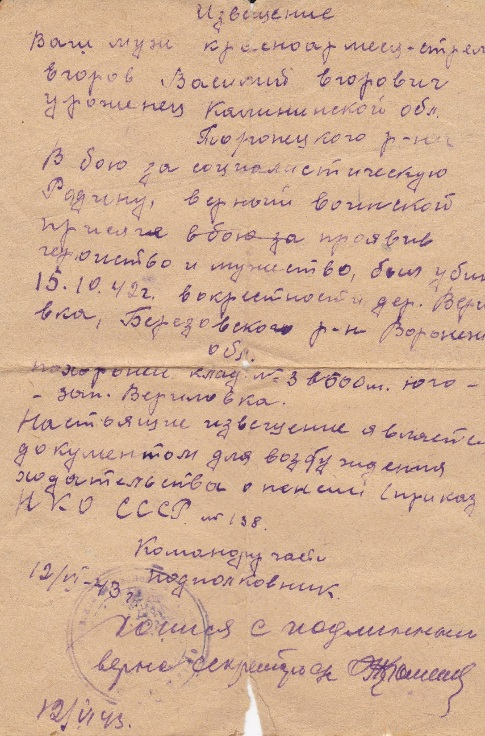 Извещение
Ваш муж красноармеец-стрел
Егоров Василий Егорович
уроженец Калининской обл.
Торопецкого р-на
В бою за социалистическую
Родину, верный воинской
присяге в бою за проявив
геройство и мужество, был убит
15.10.42г. в окрестности дер. Вери
вка, Березовского р-н Воронеж
обл.
похоронен клад. № 3 в 500м. юго-
- зап. Вериловка.
Настоящие извещение является
документом для возбуждения
ходательства о пенсии (приказ
НКО СССР № 138.
Командир части
12/VI-43г. подполковник.
Копия с подлинным
верна секретарь
12/VI 43.